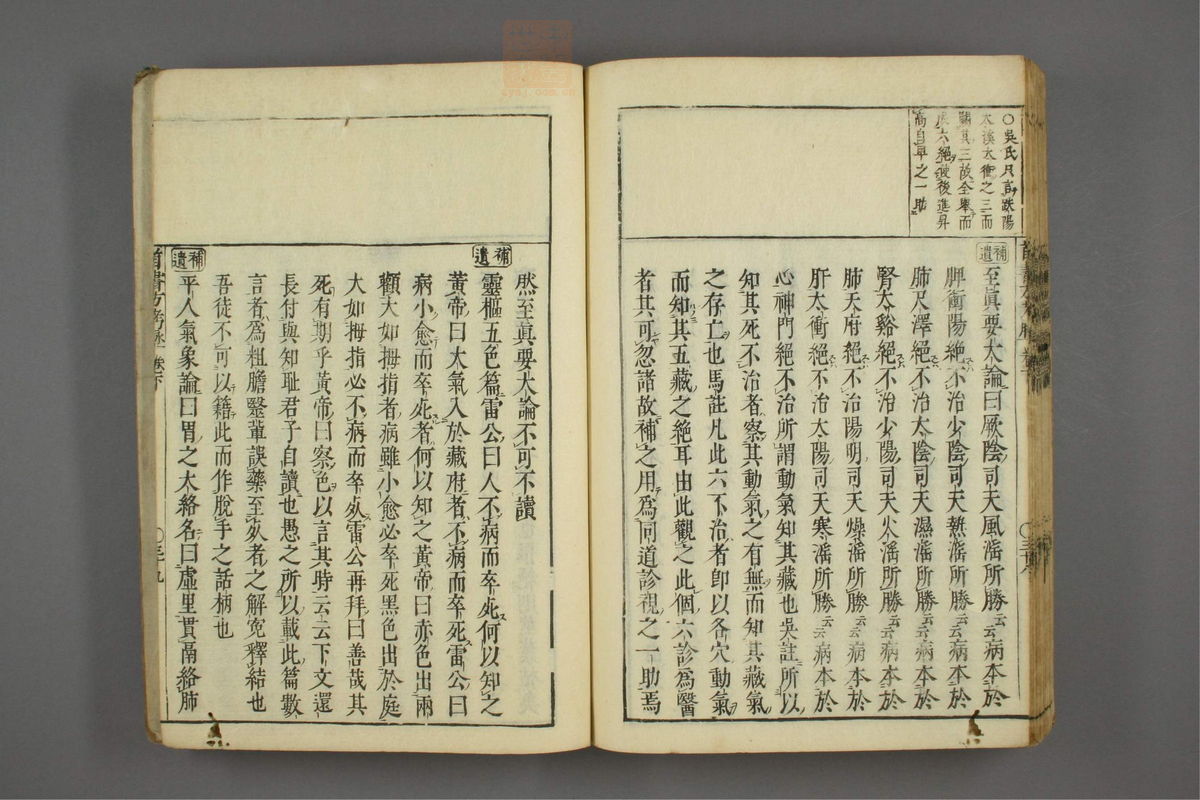 ○吳氏只言趺陽
太溪太衝之三而
闕其三故全舉而
使後進昇
高自卑之一助
補遺
至眞要大論曰厥陰司天風淫所勝云云病本於
脾衝陽絕不治少陰司天熱淫所勝云云病本於
肺尺澤絕不治太陰司天濕淫所勝云云病本於
腎太谿絕不治少陽司天火淫所勝云云病本於
肺天府絕不治陽明司天燥淫所勝云云病本於
肝太衝絕不治太陽司天寒淫所勝云云病本於
心神門絕不治所謂動氣知其藏也吳註所以
知其死不治者察其動氣之有無而知其藏氣
之存亡也馬註凡此六不治者卽以各穴動氣
而知其五藏之絕耳由此觀之此個六診爲醫
者其可忽諸故補之用爲同道診視之一助焉
然至眞要大論不可不讀
補遺
靈樞五色篇雷公曰人不病而卒死何以知之
黃帝曰大氣入於藏府者不病而卒死雷公曰
病小愈而卒死者何以知之黃帝曰赤色出兩
顴大如拇指者病雖小愈必卒死黑色出於庭
大如拇指必不病而卒死雷公再拜曰善哉其
死有期乎黃帝曰察色以言其時云云下文還
長付與知耻君子自讀也愚之所以載此篇數
言者爲粗膽毉輩誤藥至死者之解寃釋結也
吾徒不可以籍此而作脫手之話柄也
補遺
平人氣象論曰胃之大絡名曰虛里貫鬲絡肺
首書方考脉 卷下
○三十九